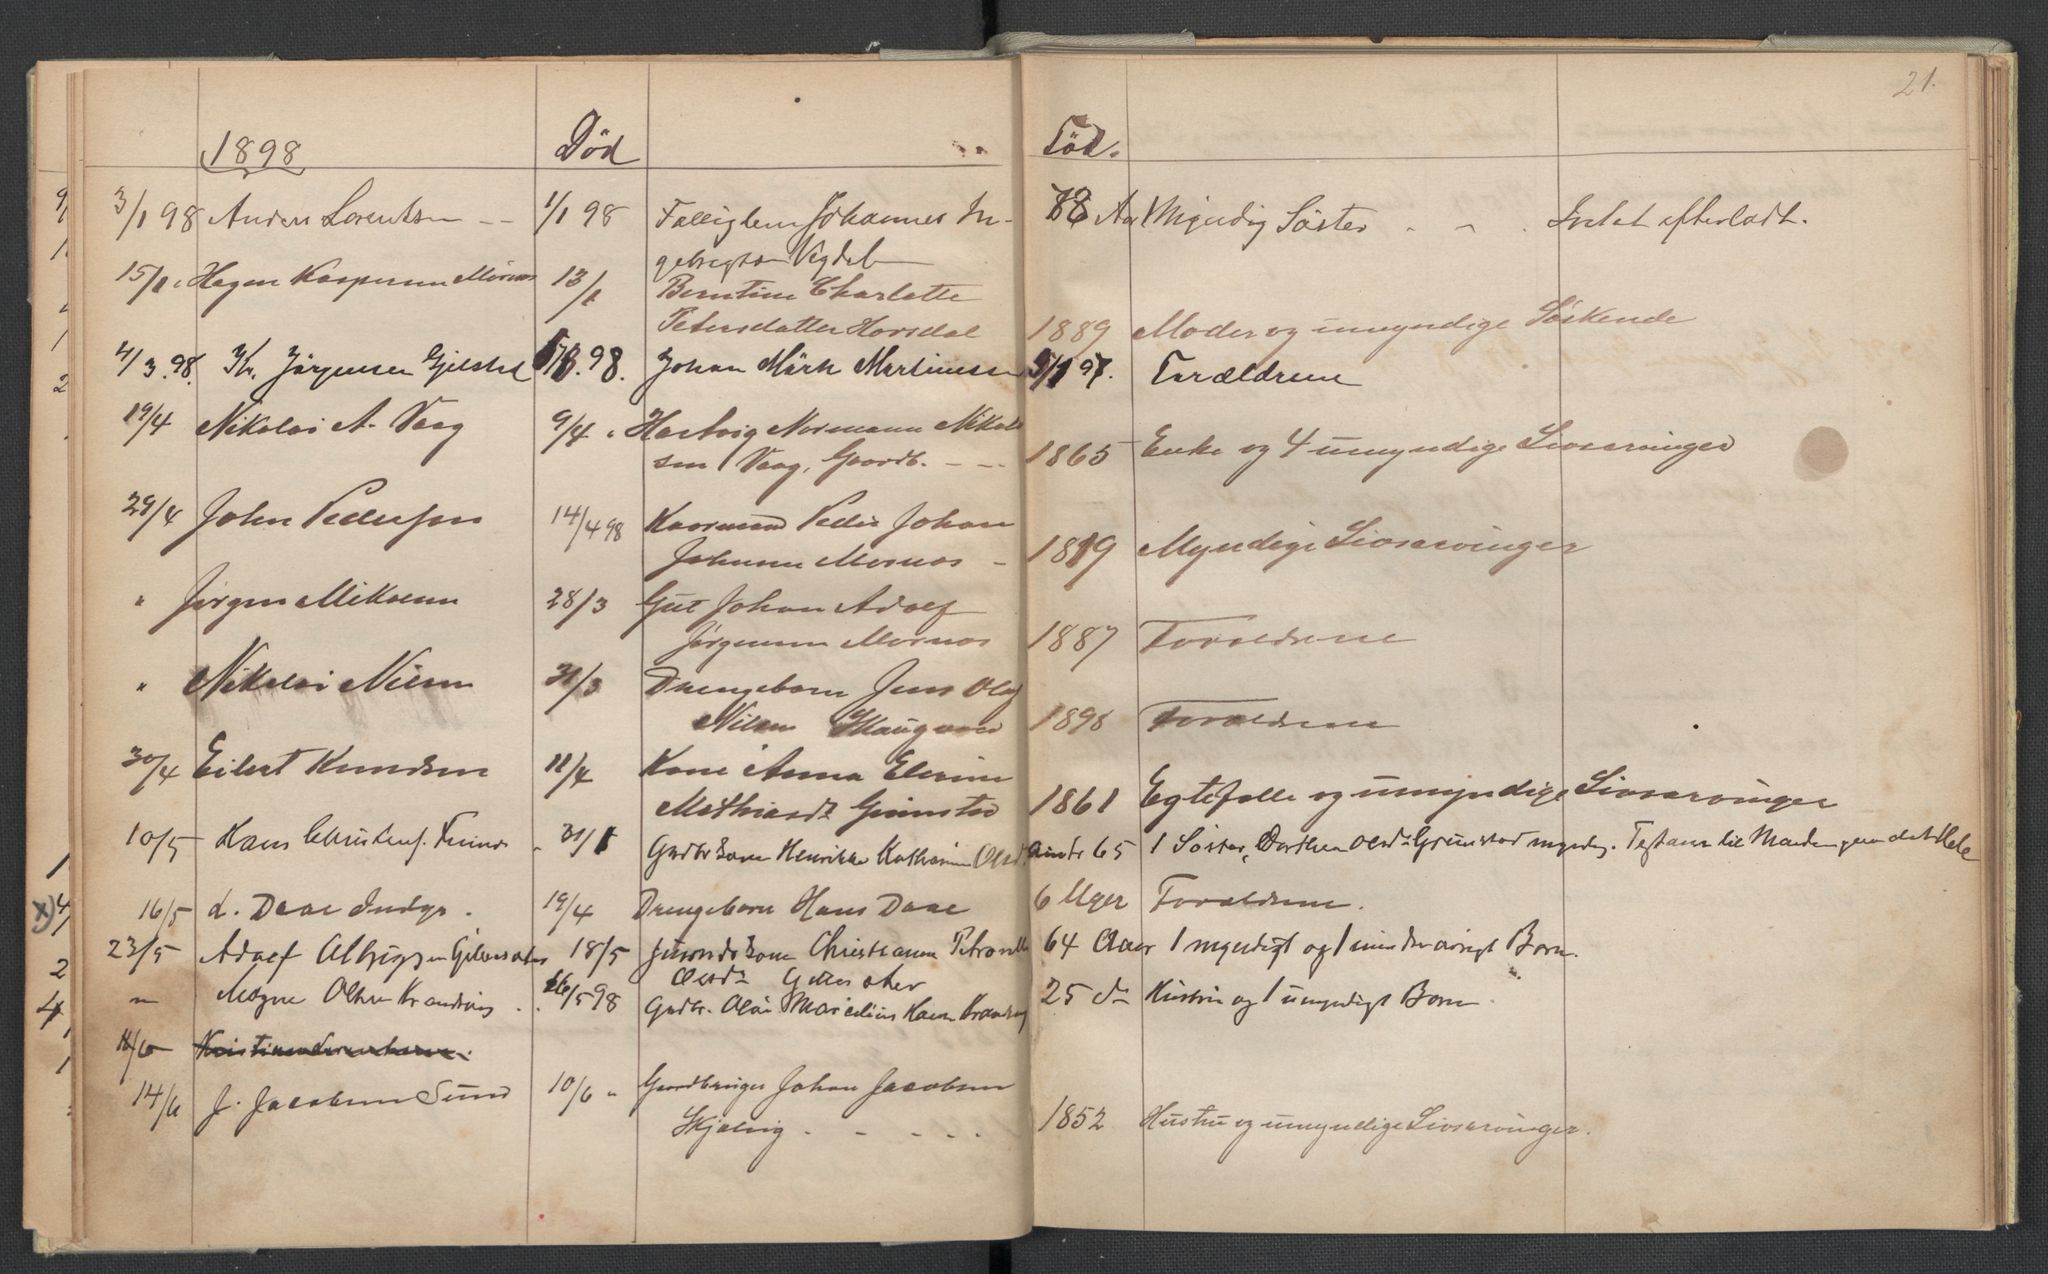 21.
1898 Død Fød.
3/1 98 Anders Lorentsen 1/1 98 Fattiglem Johannes In-
gebrigtsen Vegdal 78 Aar Myndig Søster - - . Intet efterladt.
15/1 Hagen Kaspersen Mornes 13/1 Berntine Charlotte
Petersdatter Horsdal 1889 Moder og umyndige Søskende
4/3 98. K. Jørgensen Gjelstad 98. Johan Mørk Martinussen 97. Forældrene
19/4 Nikolai A. Vaag 9/4 " Hartvig Normann Nikolai
sen Vaag, Gaardb. - - - 1865 Enke og 4 umyndige Livsarvinger
29/4 John Pedersen 14/4 98 Kaarmand Peder Johan
Johnsen Mornes - 1819 Myndige Livsarvinger
" Jørgen Mikalsen 28/3 Gut Johan Adolf
Jørgensen Mornes 1887 Forældrene
" Nikolai Nilsen 31/3 Drengebarn Jens Olaf
Nilsen Skaugvoll 1898 Forældrene
30/4 Eilert Knudsen 11/4 Kone Anna Elerine
Mathiasdr Grimstad 1861 Egtefælle og umyndige Livsarvinger
10/5 Hans Christensen 31/1 Gaardbr kone Henrikke Katharina Olsdr 65 1 Søster, Dorthea Olsdr Grimstad myndig. Testam til Manden paa det Hele
16/5 L. Daae Indyr . 19/4 Drengebarn Hans Daae 6 Uger Forældrene.
23/5 Adolf Albrigtsen Gilleskaal 18/5 kone Christianna Petronelle
Olsdr Gilleskaal 64 Aar 1 myndigt og 1 mindreaarigt Barn.
" Mogne Olsen Kranding . . 26/5 98 Gaardbr. Olai Marcelius Hansen Kranding 25 do Hustru og 1 umyndigt Barn
11/6
14/6 J. Jacobsen Sund 10/6 " Gaardbruger Johan Jacobsen
Skjelvig . - - - - . 1852 Hustru og umyndige Livsarvinger.